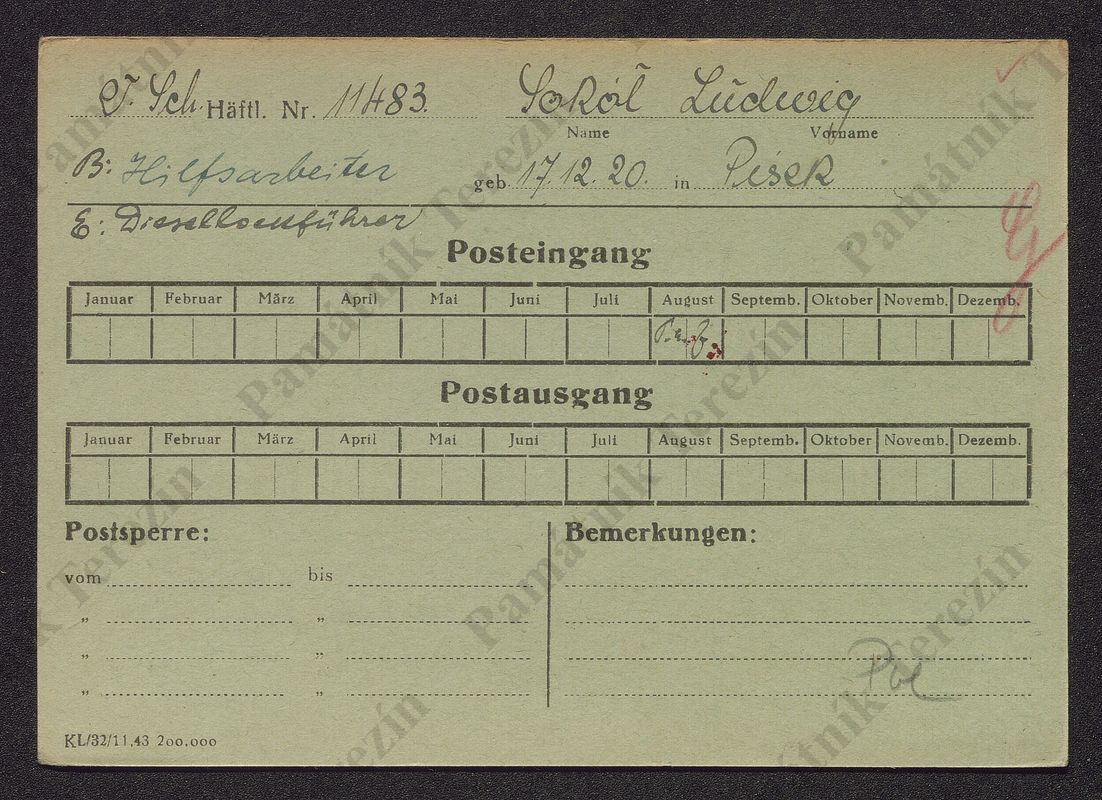 T. Sch. Häftl. Nr. 11483. Sokol Ludwig
Name Vorname
B: Hilfsarbeiter geb. 17.12.20. in Pisek
E: Diesellokführer
Posteingang
Januar Februar März April Mai Juni Juli August Septemb. Oktober Novemb. Dezemb.
Postausgang
Januar Februar März April Mai Juni Juli August Septemb. Oktober Novemb. Dezemb.
Postsperre: Bemerkungen:
vom bis
" "
" "
" "
KL/32/11.43 200.000
Památník Terezín